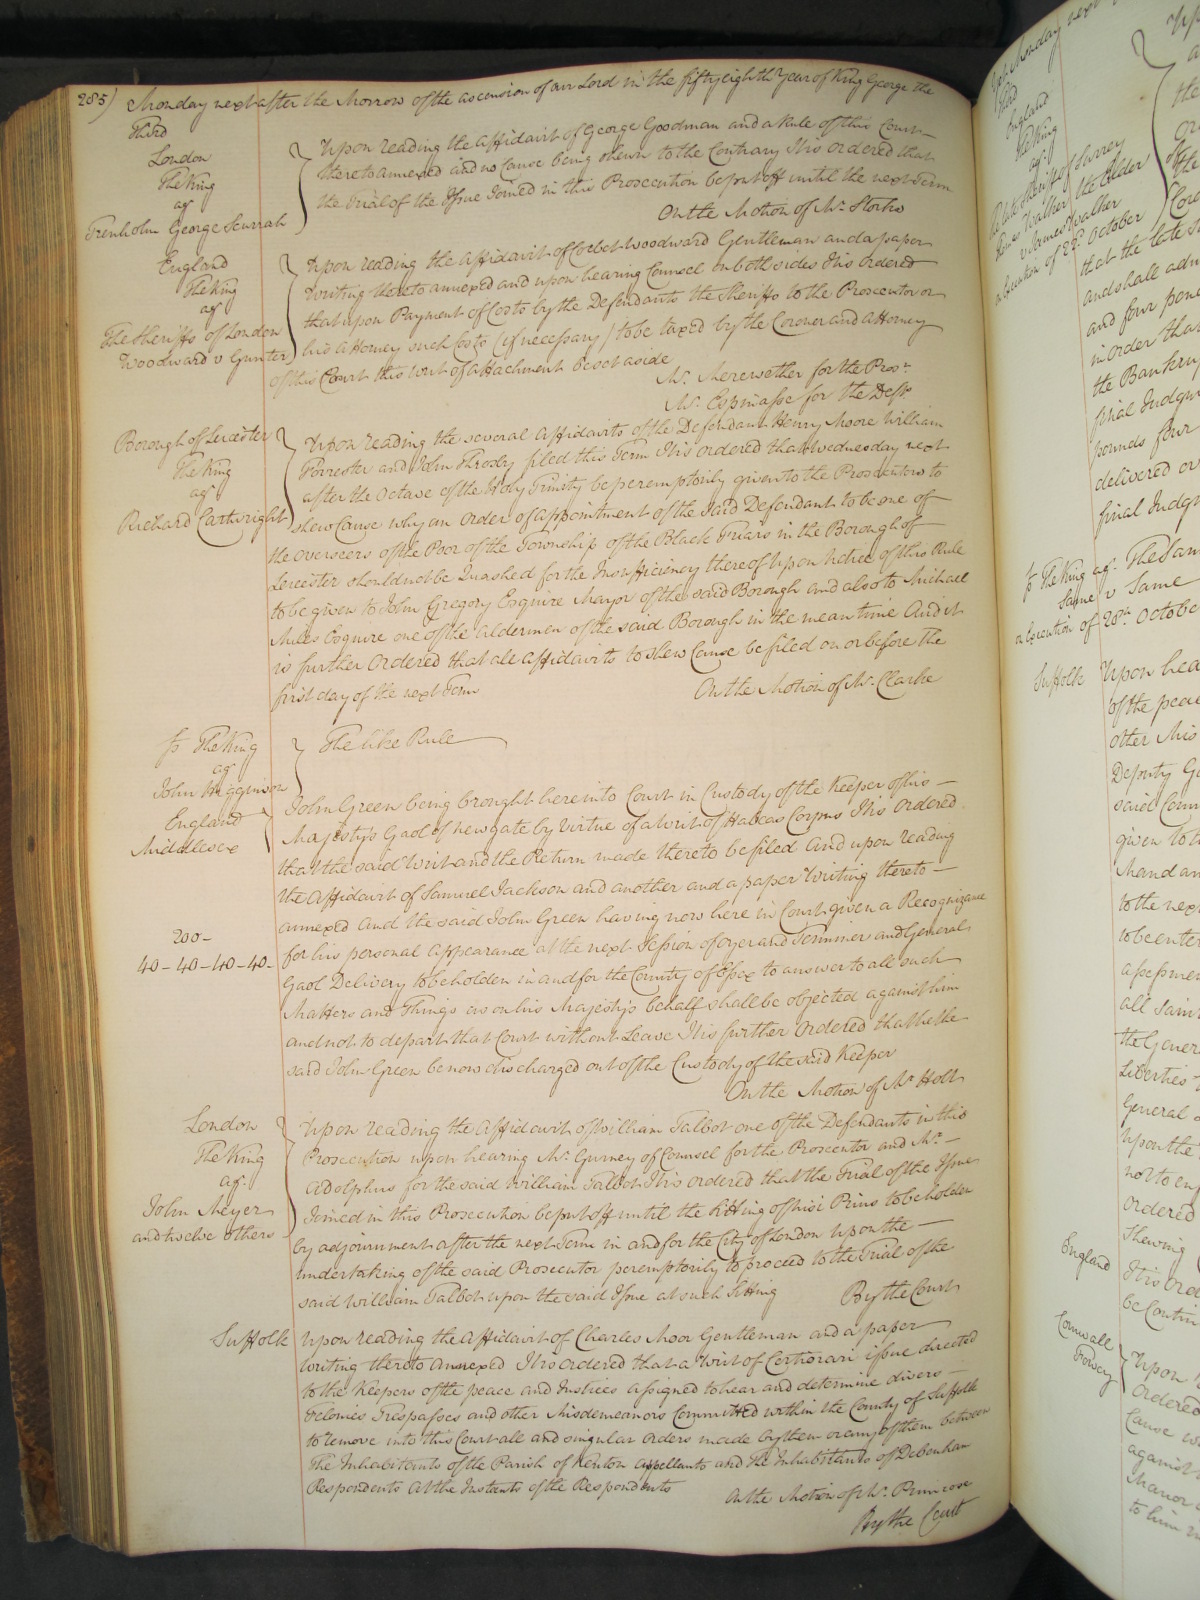 285) Monday next after the Morrow of the ascension of our Lord in the fifty eighth Year of King George the
Third
London
The King
agt
Trenholm George Scurrah
Upon reading the Affidavit of George Goodman and a Rule of this Court
thereto annexed and no Cause being shewn to the Contrary It is ordered that
the Trial of the Issue Joined in this Prosecution be put off until the next Term
On the Motion of Mr. Storks
England
The King
agt
The Sheriffs of London
Woodward v Gunter
Upon reading the Affidavit of Corbet Woodward Gentleman and a paper
writing thereto annexed and upon hearing Counsel on both sides It is Ordered
that upon Payment of Costs by the Defendants the Sheriffs to the Prosecutor or
his Attorney such Costs (if necessary) to be taxed by the Coroner and Attorney
of this Court this Writ of Attachment be set aside
Mr. Merewether for the Prosr.
Mr. Espinasse for the Defts.
Borough of Leicester
The King
agt
Richard Cartwright
Upon reading the several Affidavits of the Defendant Henry Moore William
Forrester and John Throsby filed this Term It is Ordered that Wednesday next
after the Octave of the Holy Trinity be peremptorily given to the Prosecutors to
shew Cause why an Order of appointment of the said Defendant to be one of
the Overseers of the Poor of the Township of the Black Friars in the Borough of
Leicester should not be Quashed for the Insufficiency thereof Upon Notice of this Rule
to be given to John Gregory Esquire Mayor of the said Borough and also to Michael
Miles Esquire one of the Aldermen of the said Borough in the mean time And it
is further Ordered that all Affidavits to shew Cause be filed on or before the
first day of the next Term
On the Motion of Mr. Clarke
The King
agt
John Higginson
The like Rule
England
Middlesex
200 -
40 - 40 - 40 - 40 -
John Green being brought here into Court in Custody of the Keeper of his
Majesty's Gaol of Newgate by Virtue of a Writ of Habeas Corpus It is Ordered
that the said Writ and the Return made thereto be filed And upon reading
the Affidavit of Samuel Jackson and another and a paper Writing thereto
annexed And the said John Green having now here in Court given a Recognizance
for his personal Appearance at the next Session of oyer and Terminer and General
Gaol Delivery to be holden in and for the County of Essex to answer to all such
Matters and Things as on his Majesty's behalf shall be objected against him
and not to depart that Court without Leave It is further Ordered that he the
said John Green be now discharged out of the Custody of the said Keeper
On the Motion of Mr Holt
London
The King
agt
John Meyer
and twelve others
Upon reading the Affidavit of William Talbot one of the Defendants in this
Prosecution upon hearing Mr. Gurney of Counsel for the Prosecutor and Mr.
Adolphus for the said William Talbot It is ordered that the Trial of the Issue
Joined in this Prosecution be put off until the sitting of Nisi Prius to be holden
by adjournment after the next Term in and for the City of London upon the
undertaking of the said Prosecutor peremptorily to proceed to the Trial of the
said William Talbot upon the said Issue at such Sitting
By the Court
Suffolk
Upon reading the Affidavit of Charles Moor Gentleman and a paper
writing thereto annexed It is ordered that a Writ of Certiorari issue directed
to the Keepers of the peace and Justices assigned to hear and determine divers
Felonies Trespasses and other Misdemeanors Committed within the County of Suffolk
to remove into this Court all and singular Orders made by them or any of them between
The Inhabitants of the Parish of Kenton appellants and the Inhabitants of Debenham
Respondents At the Instants of the Respondents
On the Motion of Mr. Primrose
By the Court
Monday next
Third
England
The King
agt
The late Sheriff of Surrey
James Walker the Elder
v James Walker
on Execution of 22d. October
that the late
and shall
and four
in order that
the Bankrup
final Judgm
pounds four
delivered
final Judgm
The King agt. The Same
Same v Same
on Execution of 28th October
Suffolk
Upon hea
of the peac
other
Deputy
said
given to
to the next
to be enter
all
the Gener
Liberties
General
Upon the
not to
Ordered
Shewing
England
It is Ord
be Contin
Cornwall
Fowey
Upon
Ordered
Cause
against
Manor
to him